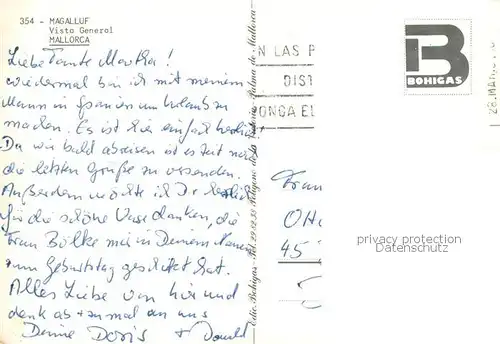 354 - MAGALLUF
Vista General
MALLORCA
Liebe Tante Martha!
wiedermal bin ich mit meinem
Mann in Spanien um Urlaub zu
machen. Es ist hier einfach herrlich!
Da wir bald abreisen ist es Zeit noch
die letzten Grüße zu versenden.
Außerdem möchte ich Dir herzlich
für die schöne Vase danken, die
Frau Bölke mir in Deinem Namen
zum Geburtstag geschickt hat.
Alles Liebe von hier und
denk ab + zu mal an uns
Deine Doris + Donald
Edic. Bohigas - Tel. 29 12 32
Palma de Mallorca
N LAS P
DIST
PONGA EL
B
BOHIGAS
28.MAR
Frau
OH
45
privacy protection
Datenschutz